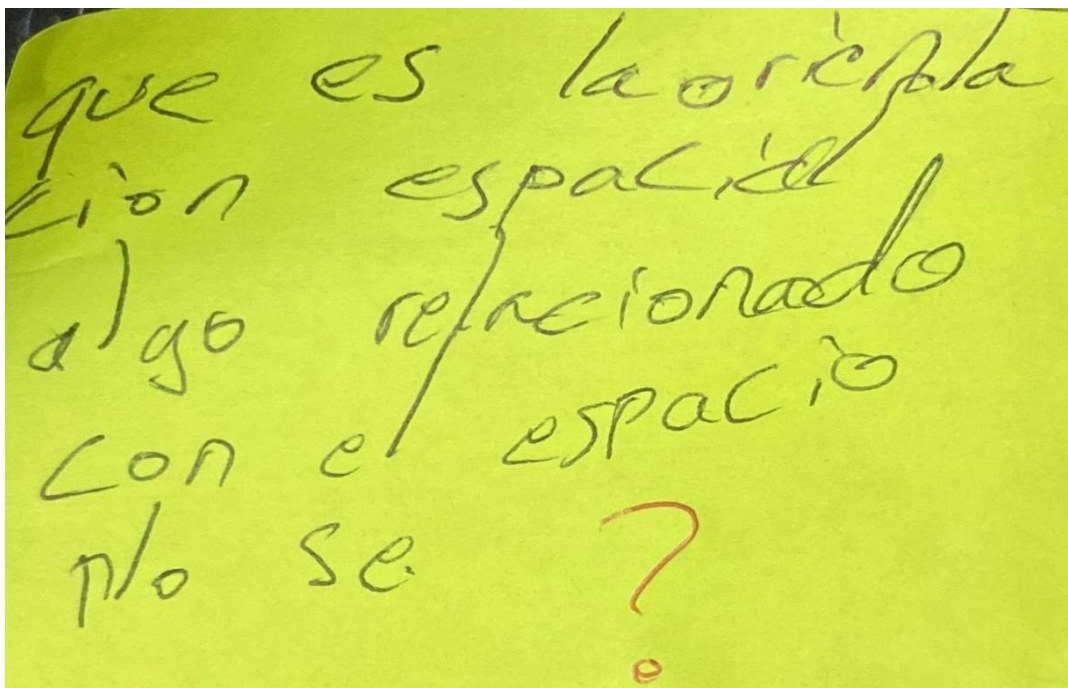 que es la orienta
cion espacial
algo relacionado
con el espacio
no se ?